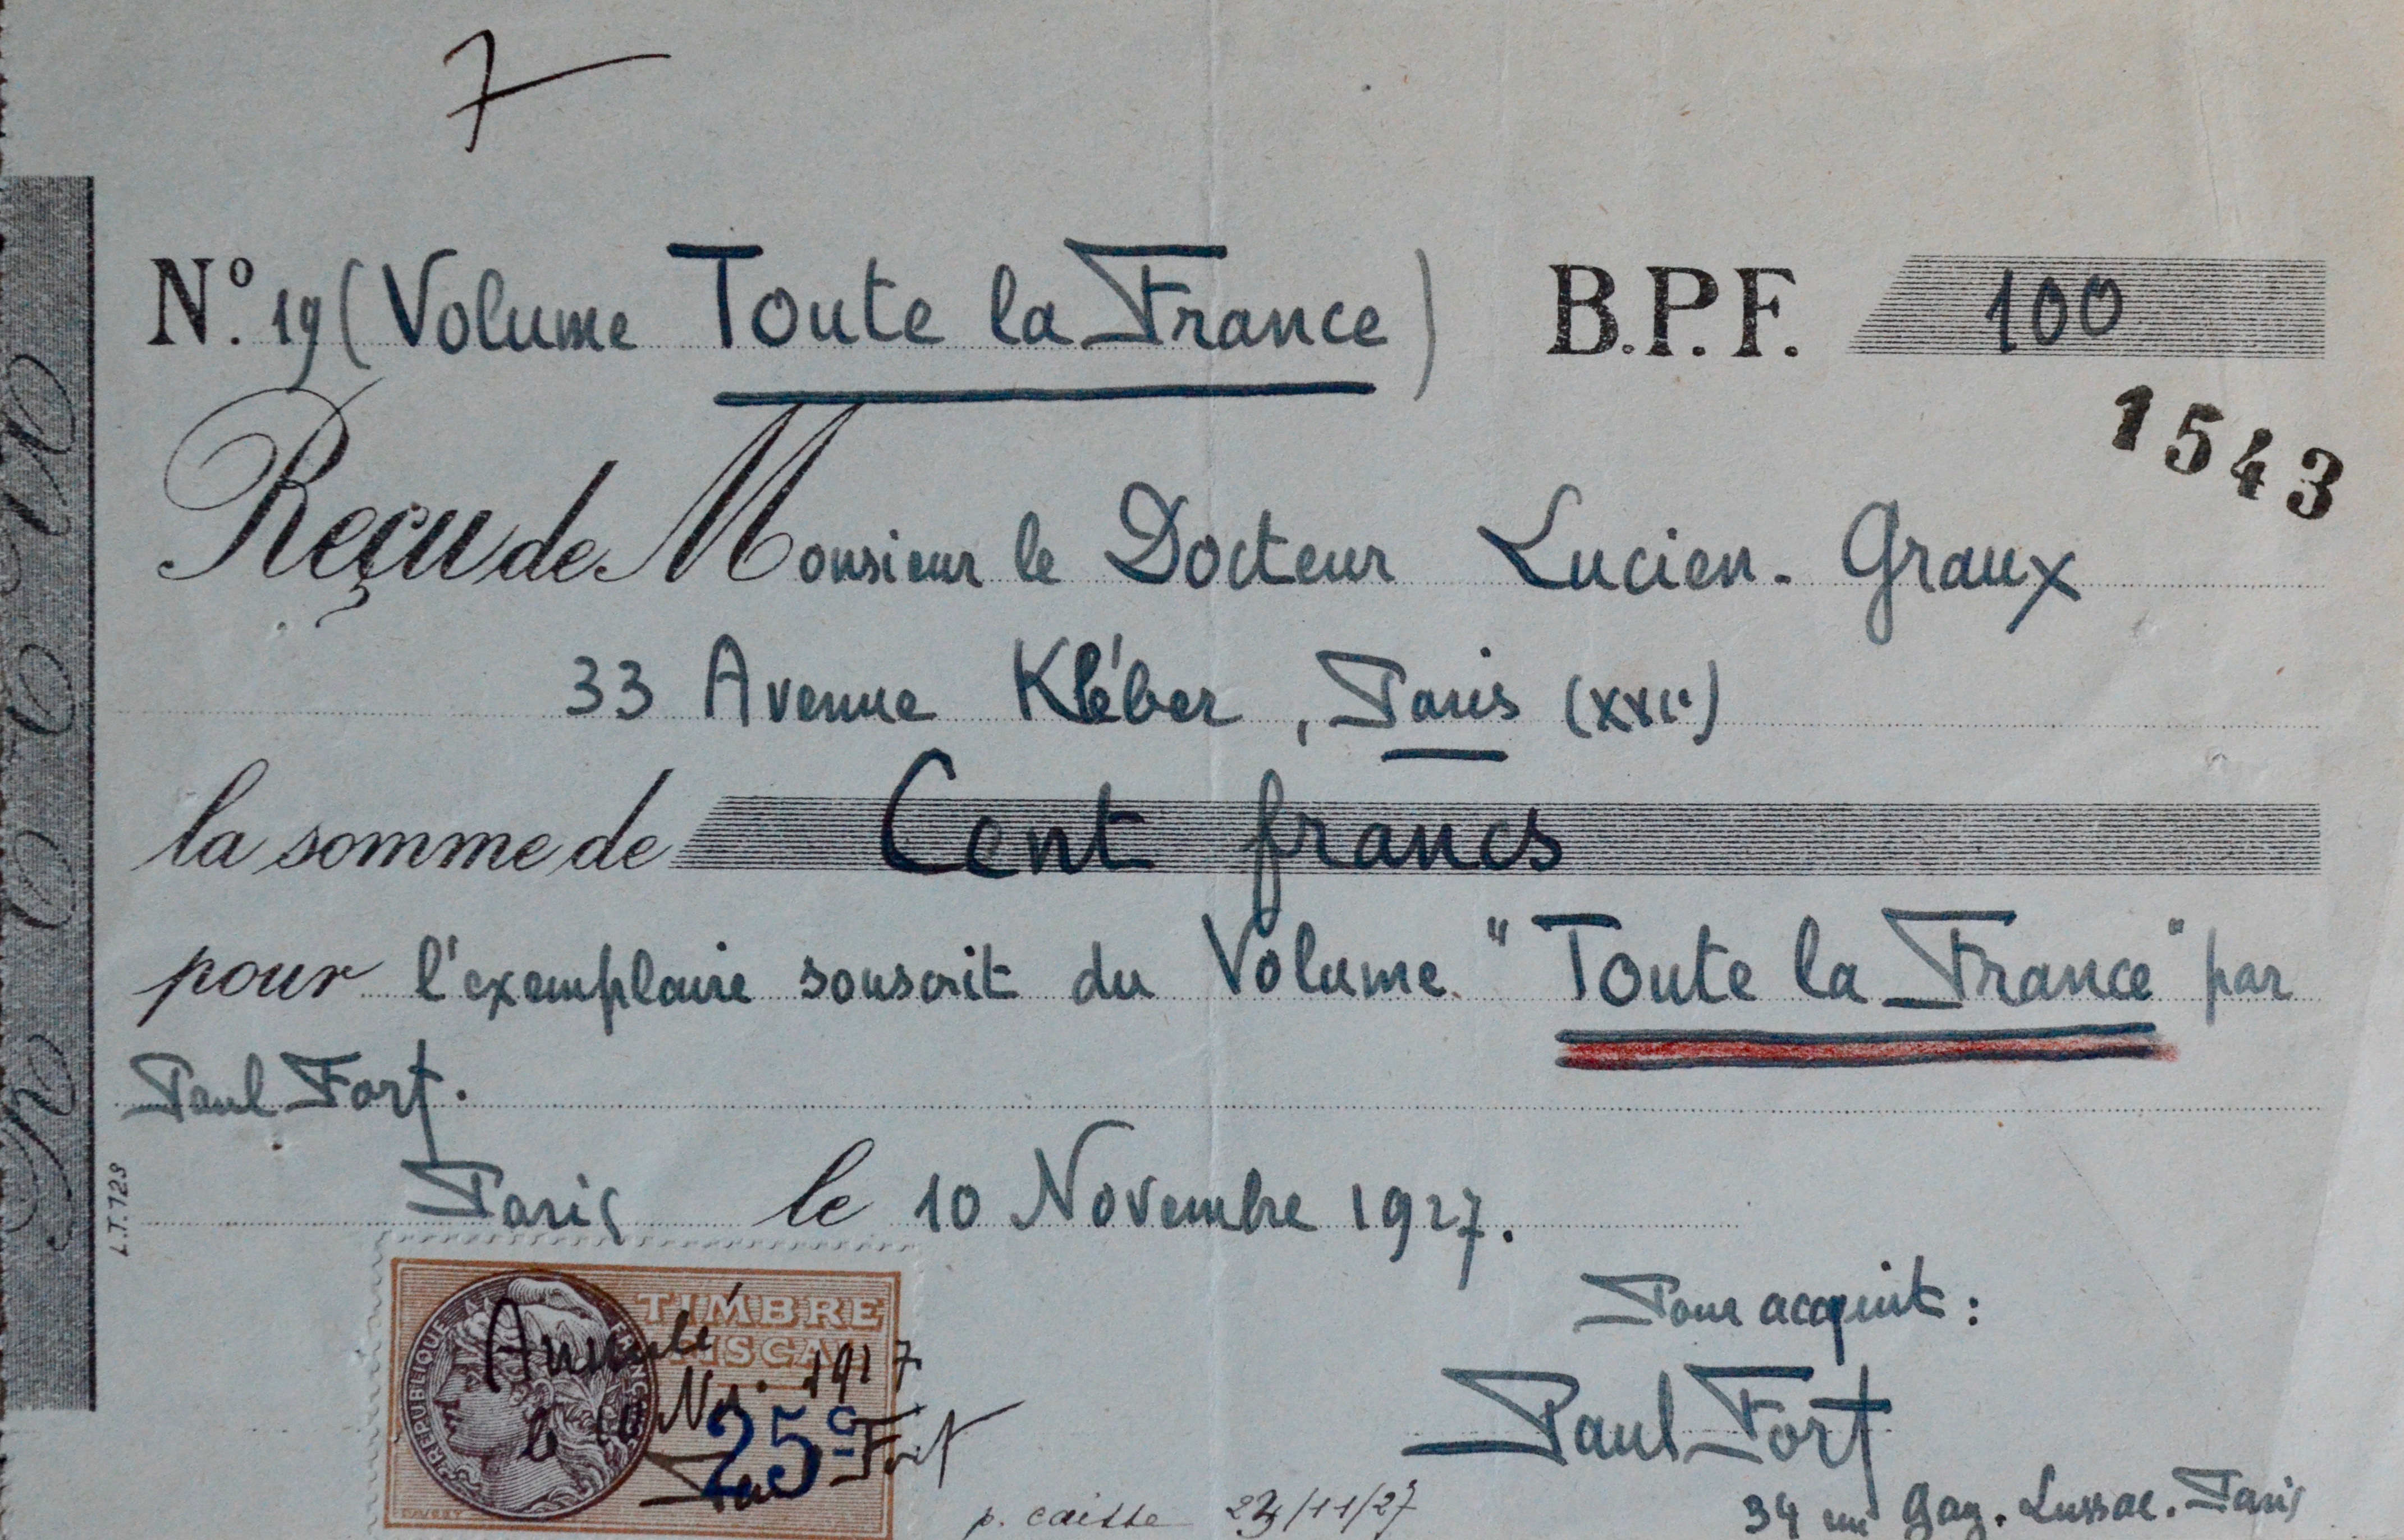 7
N.º 19 (Volume Toute la France) B.P.F. 100
1543
Reçu de Monsieur le Docteur Lucien-Graux
33 Avenue Kléber, Paris (XVIe)
la somme de Cent francs
pour l'exemplaire souscrit du Volume "Toute la France" par
Paul Fort.
Paris le 10 Novembre 1927.
L.T.723
TIMBRE
FISCAL
RÉPUBLIQUE FRANÇAISE
25c
Annulé
le 10 Nov. 1927
Paul Fort
Pour acquit :
Paul Fort
34 rue Gay-Lussac. Paris
p. caisse 23/11/27